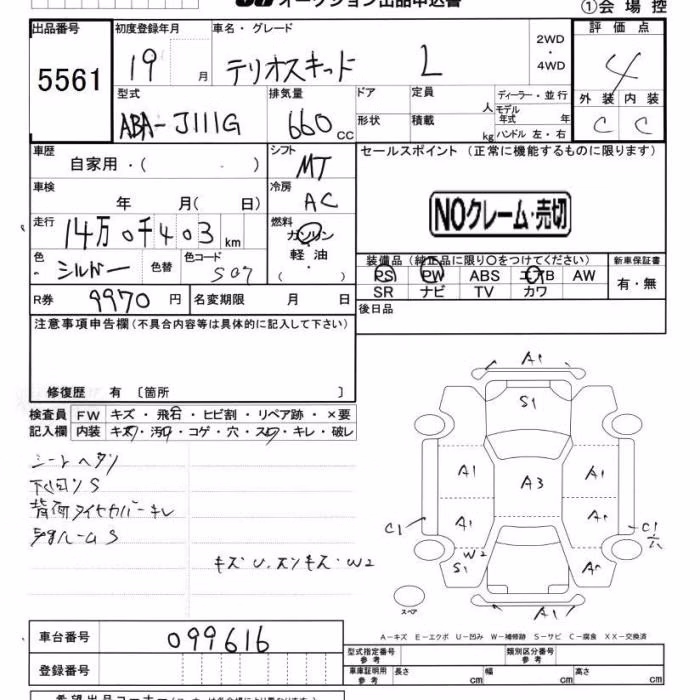 オークション出品申込書
①会場控
出品番号 5561
初度登録年月 19 月
車名・グレード テリオスキッド L
2WD ・ 4WD
評価点 4
外装 C 内装 C
型式 ABA-J111G
排気量 660 cc
ドア 形状
定員 人
積載 kg
ディーラー・並行
モデル年式 年
ハンドル 左・右
車歴 自家用・( )
シフト MT
セールスポイント (正常に機能するものに限ります)
NOクレーム・売切
車検 年 月( 日)
冷房 AC
走行 14万0千403 km
燃料 ガソリン・軽油・
色 シルバー 色替
色コード S07
装備品(純正品に限り○をつけてください)
PS PW ABS エアB AW
SR ナビ TV カワ
新車保証書 有・無
R券 9970 円 名変期限 月 日
後日品
注意事項申告欄(不具合内容等は具体的に記入して下さい)
修復歴 有 〔箇所 〕
検査員記入欄
FW キズ・飛石・ヒビ割・リペア跡・×要
内装 キズ・汚れ・コゲ・穴・スレ・キレ・破レ
シートヘタリ
下回りS
背面タイヤカバーキレ
ルームS
キズU.スンキズ・W2
A1
S1
A1 A3 A1
A1
C1 C1
W2
S1
A1
スペア
A-キズ E-エクボ U-凹み W-補修跡 S-サビ C-腐食 XX-交換済
車台番号 099616
型式指定番号 参考
類別区分番号 参考
登録番号
車庫証明用 参考 長さ cm 幅 cm 高さ cm
希望出品コーナー